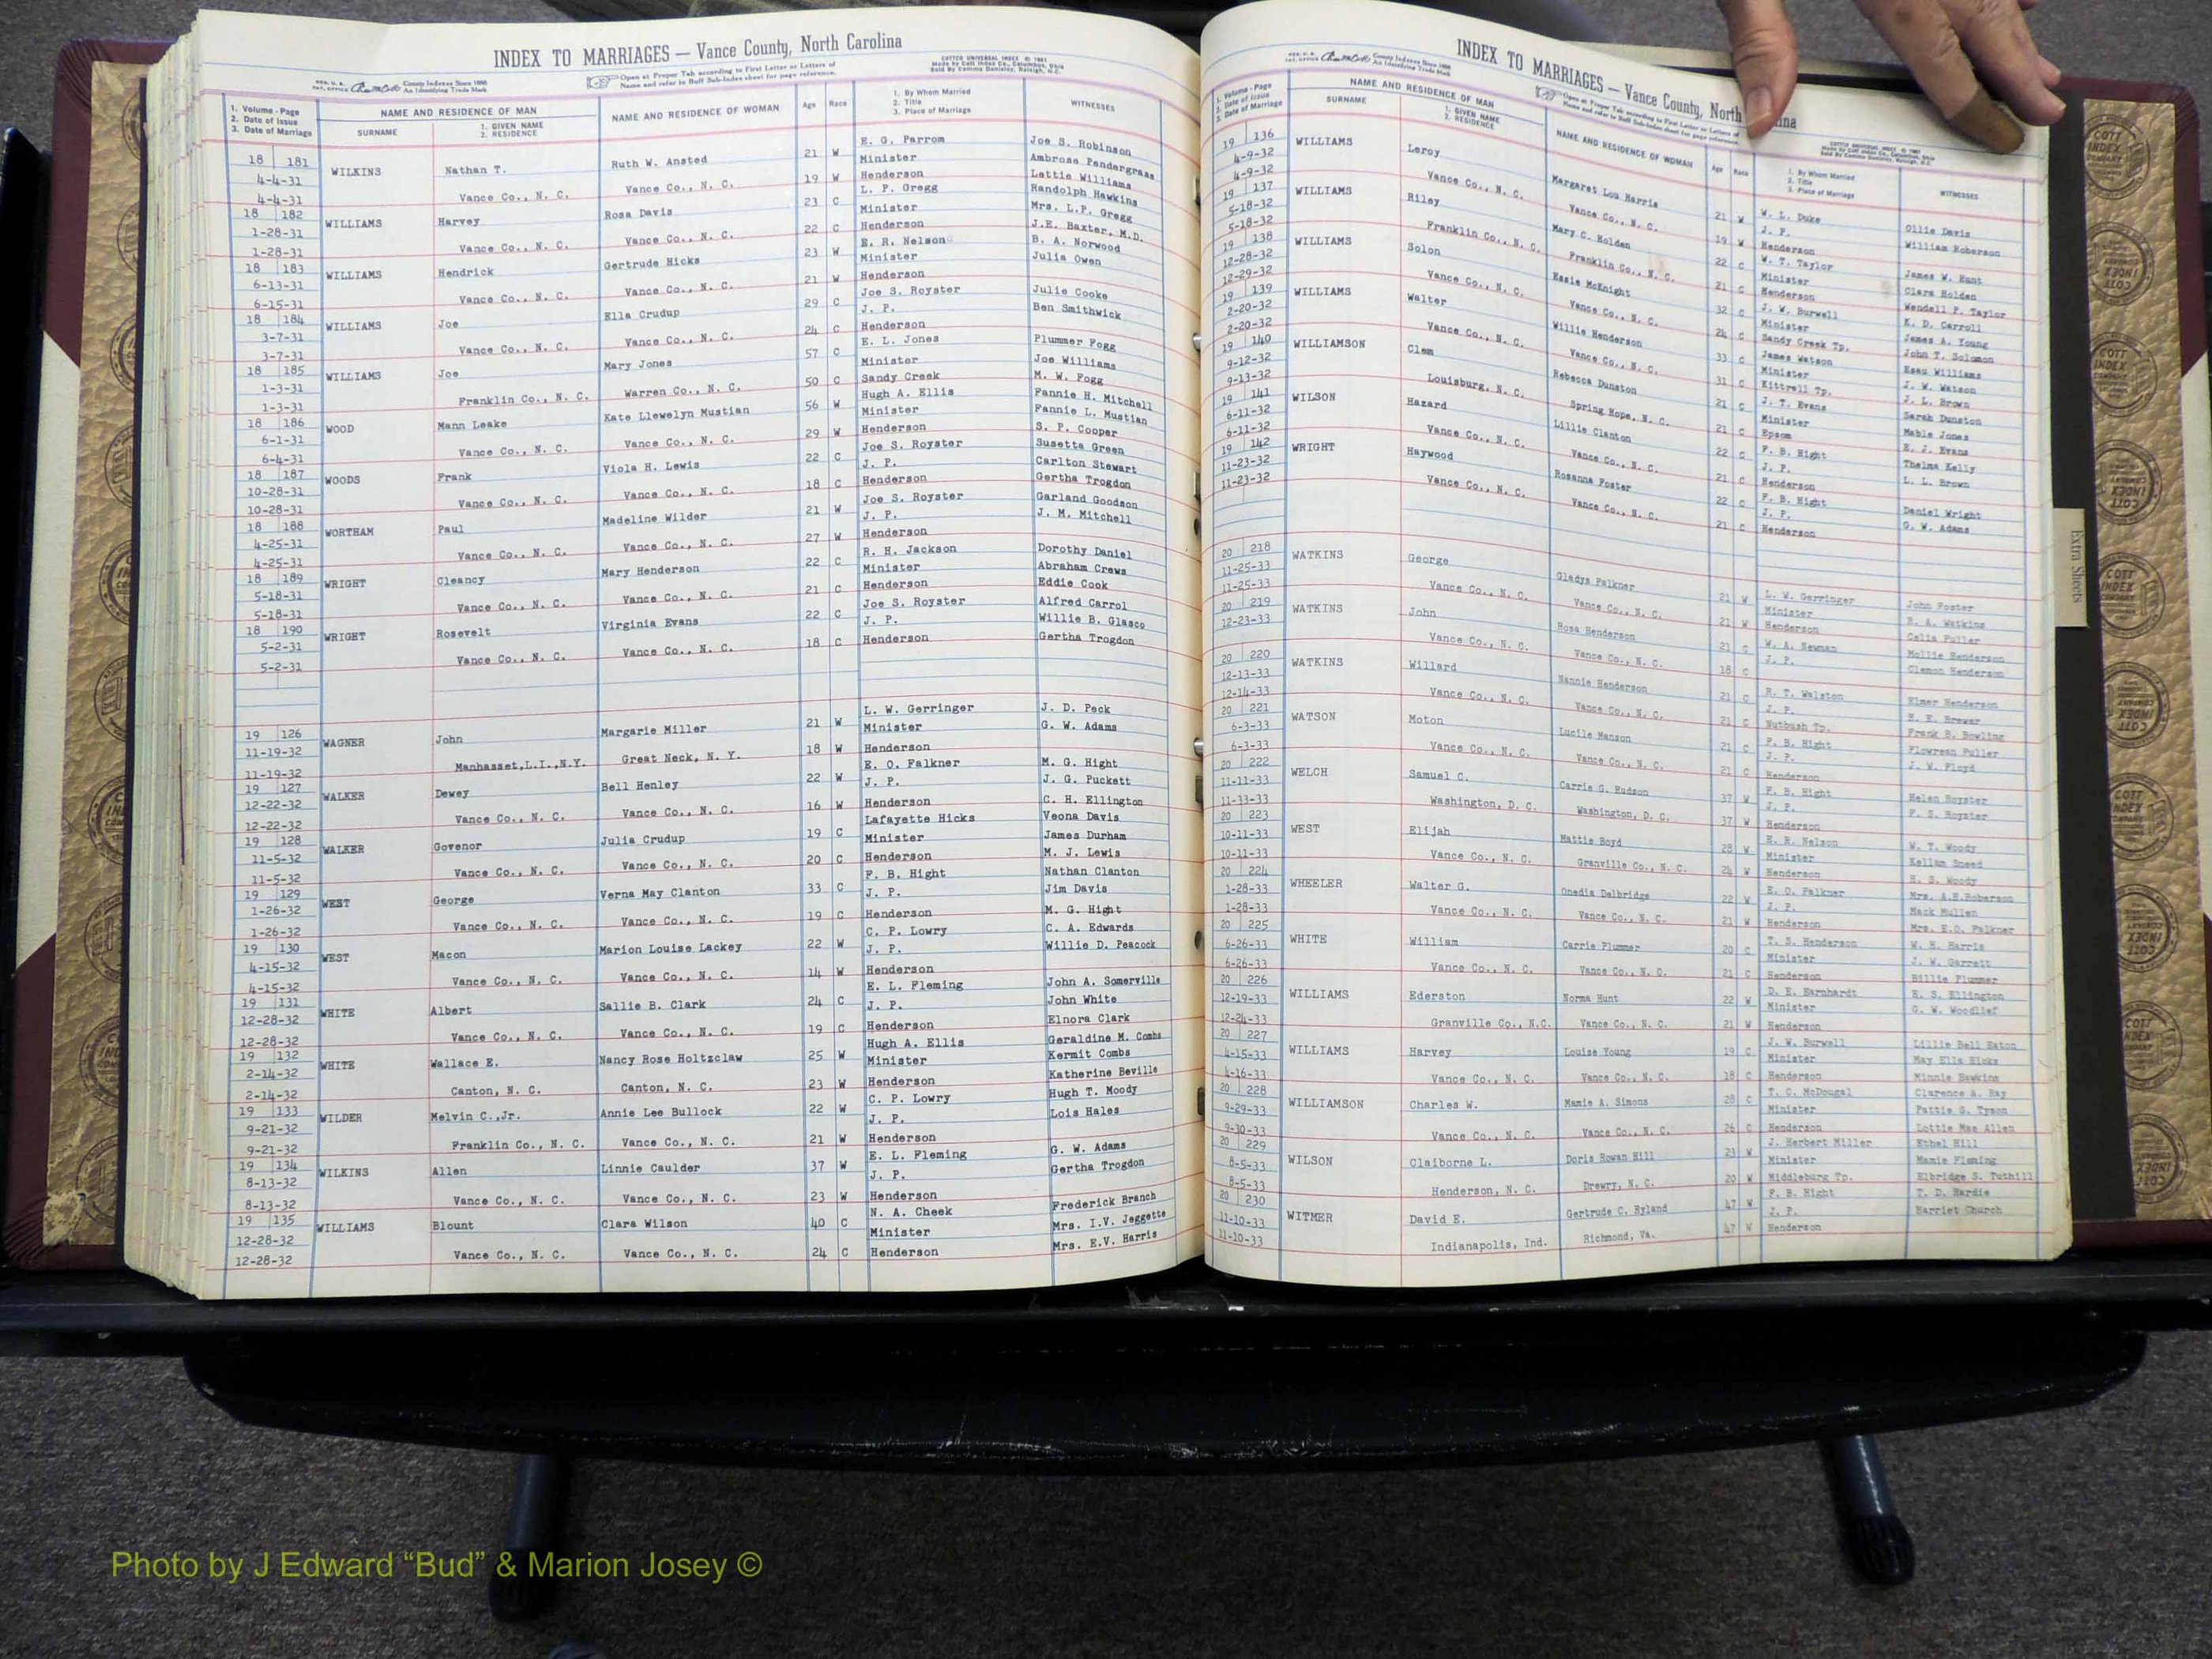 INDEX TO MARRIAGES — Vance County, North Carolina
County Indexes Since 1888
An Identifying Trade Mark
Open at Proper Tab according to First Letter or Letters of
Name and refer to Buff Sub-Index sheet for page reference.
COTTCO UNIVERSAL INDEX
1. Volume - Page
2. Date of Issue
3. Date of Marriage
NAME AND RESIDENCE OF MAN
SURNAME
1. GIVEN NAME
2. RESIDENCE
NAME AND RESIDENCE OF WOMAN
Age Race
1. By Whom Married
2. Title
3. Place of Marriage
WITNESSES
18 181 WILKINS Nathan T. Ruth W. Ansted 21 W E. G. Parrom Joe S. Robinson
4-4-31 Minister Ambrose Pendergrass
4-4-31 Vance Co., N. C. Vance Co., N. C. 19 W Henderson Lettie Williams
18 182 WILLIAMS Harvey Rosa Davis 23 C L. P. Gregg Randolph Hawkins
1-28-31 Minister Mrs. L.P. Gregg
1-28-31 Vance Co., N. C. Vance Co., N. C. 22 C Henderson J.E. Baxter, M.D.
18 183 WILLIAMS Hendrick Gertrude Hicks 23 W E. R. Nelson B. A. Norwood
6-13-31 Minister Julia Owen
6-15-31 Vance Co., N. C. Vance Co., N. C. 21 W Henderson
18 184 WILLIAMS Joe Ella Crudup 29 C Joe S. Royster Julie Cooke
3-7-31 J. P. Ben Smithwick
3-7-31 Vance Co., N. C. Vance Co., N. C. 24 C Henderson
18 185 WILLIAMS Joe Mary Jones 57 C E. L. Jones Plummer Fogg
1-3-31 Minister Joe Williams
1-3-31 Franklin Co., N. C. Warren Co., N. C. 50 C Sandy Creek M. W. Fogg
18 186 WOOD Mann Leake Kate Llewelyn Mustian 56 W Hugh A. Ellis Fannie H. Mitchell
6-1-31 Minister Fannie L. Mustian
6-4-31 Vance Co., N. C. Vance Co., N. C. 29 W Henderson S. P. Cooper
18 187 WOODS Frank Viola H. Lewis 22 C Joe S. Royster Susetta Green
10-28-31 J. P. Carlton Stewart
10-28-31 Vance Co., N. C. Vance Co., N. C. 18 C Henderson Gertha Trogdon
18 188 WORTHAM Paul Madeline Wilder 21 W Joe S. Royster Garland Goodson
4-25-31 J. P. J. M. Mitchell
4-25-31 Vance Co., N. C. Vance Co., N. C. 27 W Henderson
18 189 WRIGHT Cleancy Mary Henderson 22 C R. H. Jackson Dorothy Daniel
5-18-31 Minister Abraham Crews
5-18-31 Vance Co., N. C. Vance Co., N. C. 21 C Henderson Eddie Cook
18 190 WRIGHT Rosevelt Virginia Evans 22 C Joe S. Royster Alfred Carrol
5-2-31 J. P. Willie B. Glasco
5-2-31 Vance Co., N. C. Vance Co., N. C. 18 C Henderson Gertha Trogdon
19 126 WAGNER John Margarie Miller 21 W L. W. Gerringer J. D. Peck
11-19-32 Minister G. W. Adams
11-19-32 Manhasset,L.I.,N.Y. Great Neck, N. Y. 18 W Henderson
19 127 WALKER Dewey Bell Henley 22 W E. O. Falkner M. G. Hight
12-22-32 J. P. J. G. Puckett
12-22-32 Vance Co., N. C. Vance Co., N. C. 16 W Henderson C. H. Ellington
19 128 WALKER Govenor Julia Crudup 19 C Lafayette Hicks Veona Davis
11-5-32 Minister James Durham
11-5-32 Vance Co., N. C. Vance Co., N. C. 20 C Henderson M. J. Lewis
19 129 WEST George Verna May Clanton 33 C F. B. Hight Nathan Clanton
1-26-32 J. P. Jim Davis
1-26-32 Vance Co., N. C. Vance Co., N. C. 19 C Henderson M. G. Hight
19 130 WEST Macon Marion Louise Lackey 22 W C. P. Lowry C. A. Edwards
4-15-32 J. P. Willie D. Peacock
4-15-32 Vance Co., N. C. Vance Co., N. C. 14 W Henderson
19 131 WHITE Albert Sallie B. Clark 24 C E. L. Fleming John A. Somerville
12-28-32 J. P. John White
12-28-32 Vance Co., N. C. Vance Co., N. C. 19 C Henderson Elnora Clark
19 132 WHITE Wallace E. Nancy Rose Holtzclaw 25 W Hugh A. Ellis Geraldine M. Combs
2-14-32 Minister Kermit Combs
2-14-32 Canton, N. C. Canton, N. C. 23 W Henderson Katherine Beville
19 133 WILDER Melvin C.,Jr. Annie Lee Bullock 22 W C. P. Lowry Hugh T. Moody
9-21-32 J. P. Lois Hales
9-21-32 Franklin Co., N. C. Vance Co., N. C. 21 W Henderson
19 134 WILKINS Allen Linnie Caulder 37 W E. L. Fleming G. W. Adams
8-13-32 J. P. Gertha Trogdon
8-13-32 Vance Co., N. C. Vance Co., N. C. 23 W Henderson
19 135 WILLIAMS Blount Clara Wilson 40 C N. A. Cheek Frederick Branch
12-28-32 Minister Mrs. I.V. Jeggette
12-28-32 Vance Co., N. C. Vance Co., N. C. 24 C Henderson Mrs. E.V. Harris
INDEX TO MARRIAGES — Vance County, North
ina
County Indexes Since 1888
An Identifying Trade Mark
Open at Proper Tab according to First Letter or Letters of
Name and refer to Buff Sub-Index sheet for page reference.
1. Volume - Page
2. Date of Issue
3. Date of Marriage
NAME AND RESIDENCE OF MAN
SURNAME
1. GIVEN NAME
2. RESIDENCE
NAME AND RESIDENCE OF WOMAN
Age Race
1. By Whom Married
2. Title
3. Place of Marriage
WITNESSES
19 136 WILLIAMS Leroy Margaret Lou Harris 21 W W. L. Duke Ollie Davis
4-9-32 J. P. William Roberson
4-9-32 Vance Co., N. C. Vance Co., N. C. 19 W Henderson
19 137 WILLIAMS Riley Mary C. Holden 22 C W. T. Taylor James W. Hunt
5-18-32 Minister Clara Holden
5-18-32 Franklin Co., N. C. Franklin Co., N. C. 21 C Henderson Wendell P. Taylor
19 138 WILLIAMS Solon Essie McKnight 32 C J. W. Burwell K. D. Carroll
12-28-32 Minister James A. Young
12-29-32 Vance Co., N. C. Vance Co., N. C. 24 C Sandy Creek Tp. John T. Solomon
19 139 WILLIAMS Walter Willie Henderson 33 C James Watson Esau Williams
2-20-32 Minister J. W. Watson
2-20-32 Vance Co., N. C. Vance Co., N. C. 31 C Kittrell Tp. J. L. Brown
19 140 WILLIAMSON Clem Rebecca Dunston 21 C J. T. Evans Sarah Dunston
9-12-32 Minister Mable Jones
9-13-32 Louisburg, N. C. Spring Hope, N. C. 21 C Epsom E. J. Evans
19 141 WILSON Hazard Lillie Clanton 22 C F. B. Hight Thelma Kelly
6-11-32 J. P. L. L. Brown
6-11-32 Vance Co., N. C. Vance Co., N. C. 21 C Henderson
19 142 WRIGHT Haywood Rosanna Foster 22 C F. B. Hight Daniel Wright
11-23-32 J. P. G. W. Adams
11-23-32 Vance Co., N. C. Vance Co., N. C. 21 C Henderson
20 218 WATKINS George Gladys Falkner 21 W L. W. Gerringer John Foster
11-25-33 Minister R. A. Watkins
11-25-33 Vance Co., N. C. Vance Co., N. C. 21 W Henderson Celia Fuller
20 219 WATKINS John Rosa Henderson 21 C W. A. Newman Mollie Henderson
12-23-33 J. P. Clemon Henderson
Vance Co., N. C. Vance Co., N. C. 18 C
20 220 WATKINS Willard Nannie Henderson 21 C R. T. Walston Elmer Henderson
12-13-33 J. P. N. E. Brewer
12-14-33 Vance Co., N. C. Vance Co., N. C. 21 C Nutbush Tp. Frank B. Bowling
20 221 WATSON Moton Lucile Manson 21 C F. B. Hight Flowrean Fuller
6-3-33 J. P. J. W. Floyd
6-3-33 Vance Co., N. C. Vance Co., N. C. 21 C Henderson
20 222 WELCH Samuel C. Carrie G. Hudson 37 W F. B. Hight Helen Royster
11-11-33 J. P. F. S. Royster
11-33-33 Washington, D. C. Washington, D. C. 37 W Henderson
20 223 WEST Elijah Mattie Boyd 28 W E. R. Nelson W. T. Woody
10-11-33 Minister Kellam Sneed
10-11-33 Vance Co., N. C. Granville Co., N. C. 24 W Henderson H. S. Woody
20 224 WHEELER Walter G. Onedia Delbridge 22 W E. O. Falkner Mrs. A.H.Roberson
1-28-33 J. P. Mack Mullen
1-28-33 Vance Co., N. C. Vance Co., N. C. 21 W Henderson Mrs. E.O. Falkner
20 225 WHITE William Carrie Plummer 20 C T. S. Henderson W. H. Harris
6-26-33 Minister J. W. Garrett
6-26-33 Vance Co., N. C. Vance Co., N. C. 21 C Henderson Billie Plummer
20 226 WILLIAMS Ederston Norma Hunt 22 W D. E. Earnhardt H. S. Ellington
12-19-33 Minister G. W. Woodlief
12-24-33 Granville Co., N.C. Vance Co., N. C. 21 W Henderson
20 227 WILLIAMS Harvey Louise Young 19 C J. W. Burwell Lillie Bell Eaton
4-15-33 Minister May Ella Hicks
4-16-33 Vance Co., N. C. Vance Co., N. C. 18 C Henderson Minnie Hawkins
20 228 WILLIAMSON Charles W. Mamie A. Simons 28 C T. C. McDougal Clarence A. Hay
9-29-33 Minister Pattie G. Tyson
9-30-33 Vance Co., N. C. Vance Co., N. C. 26 C Henderson Lottie Mae Allen
20 229 WILSON Claiborne L. Doris Rowan Hill 23 W J. Herbert Miller Ethel Hill
8-5-33 Minister Mamie Fleming
8-5-33 Henderson, N. C. Drewry, N. C. 20 W Middleburg Tp. Elbridge S. Tuthill
20 230 WITMER David E. Gertrude C. Ryland 47 W F. B. Hight T. D. Hardie
11-10-33 J. P. Harriet Church
11-10-33 Indianapolis, Ind. Richmond, Va. 47 W Henderson
Extra Sheets
COTT INDEX COMPANY
Photo by J Edward “Bud” & Marion Josey ©